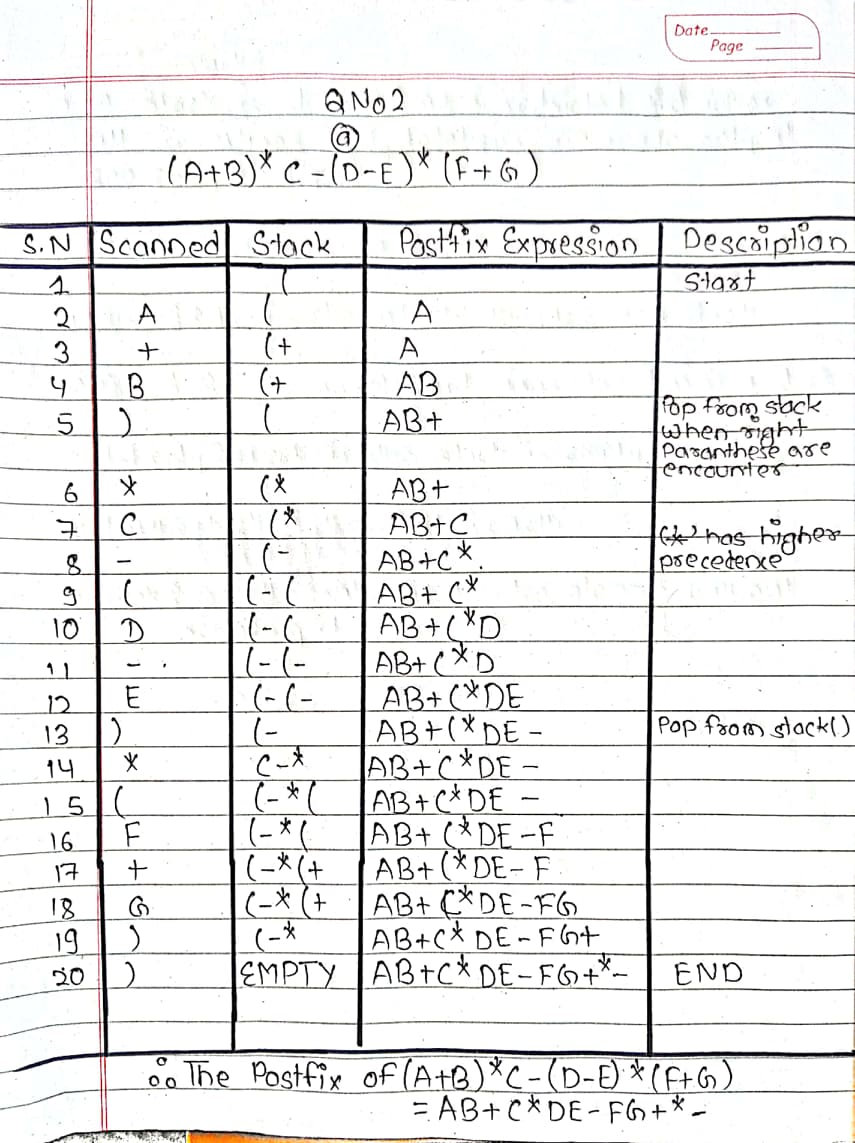 Date
Page
QNo2
(a)
(A+B)* C-(D-E)* (F+G)
S.N Scanned Stack Postfix Expression Description
1 ( Start
2 A ( A
3 + (+ A
4 B (+ AB
5 ) ( AB+ Pop from stack when right Paranthese are encounter
6 * (* AB+
7 C (* AB+C
8 - (- AB+C*. (*) has higher precedence
9 ( (-( AB+C*
10 D (-( AB+C*D
11 - (-(- AB+C*D
12 E (-(- AB+C*DE
13 ) (- AB+C*DE- Pop from stack()
14 * (-* AB+C*DE-
15 ( (-*( AB+C*DE-
16 F (-*( AB+C*DE-F
17 + (-*(+ AB+C*DE-F
18 G (-*(+ AB+C*DE-FG
19 ) (-* AB+C*DE-FG+
20 ) EMPTY AB+C*DE-FG+*- END
∴ The Postfix of (A+B)*C-(D-E)*(F+G)
= AB+C*DE-FG+*-